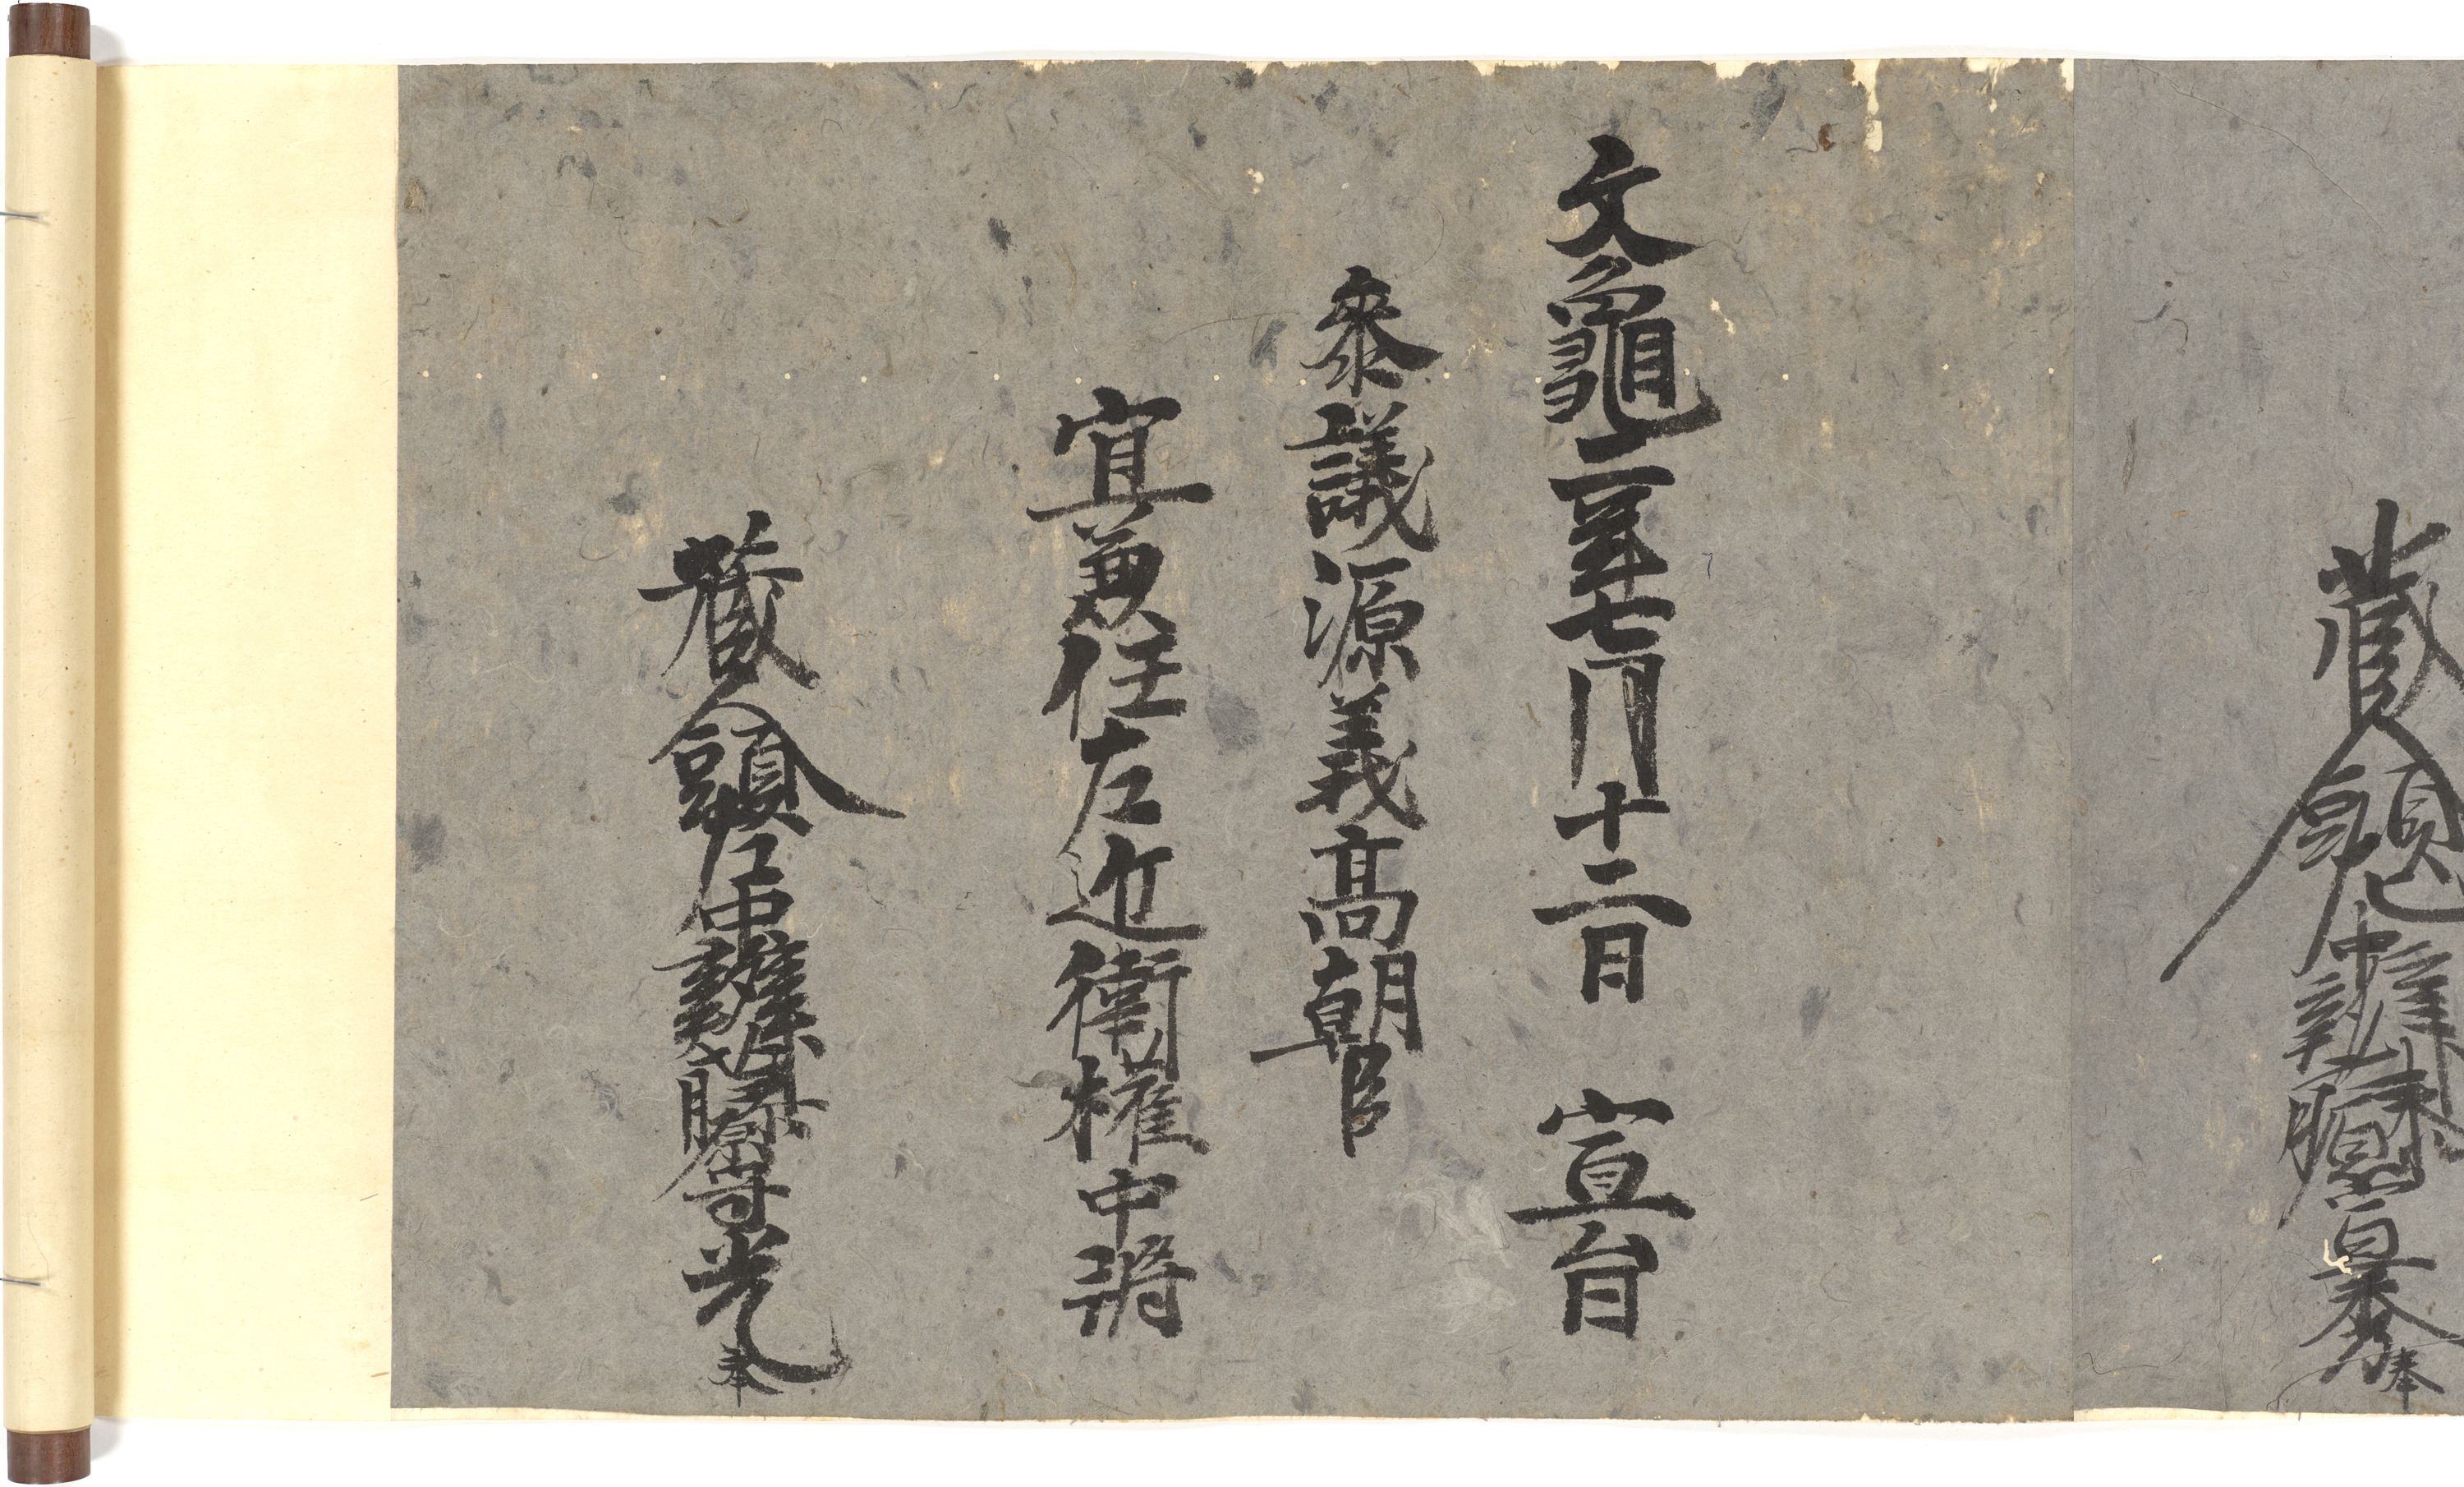 藏人頭中辨藤原宣秀奉
文龜二年七月十二日 宣旨
參議源義高朝臣
宜兼任左近衛權中將
藏人頭左中辨藤原守光奉